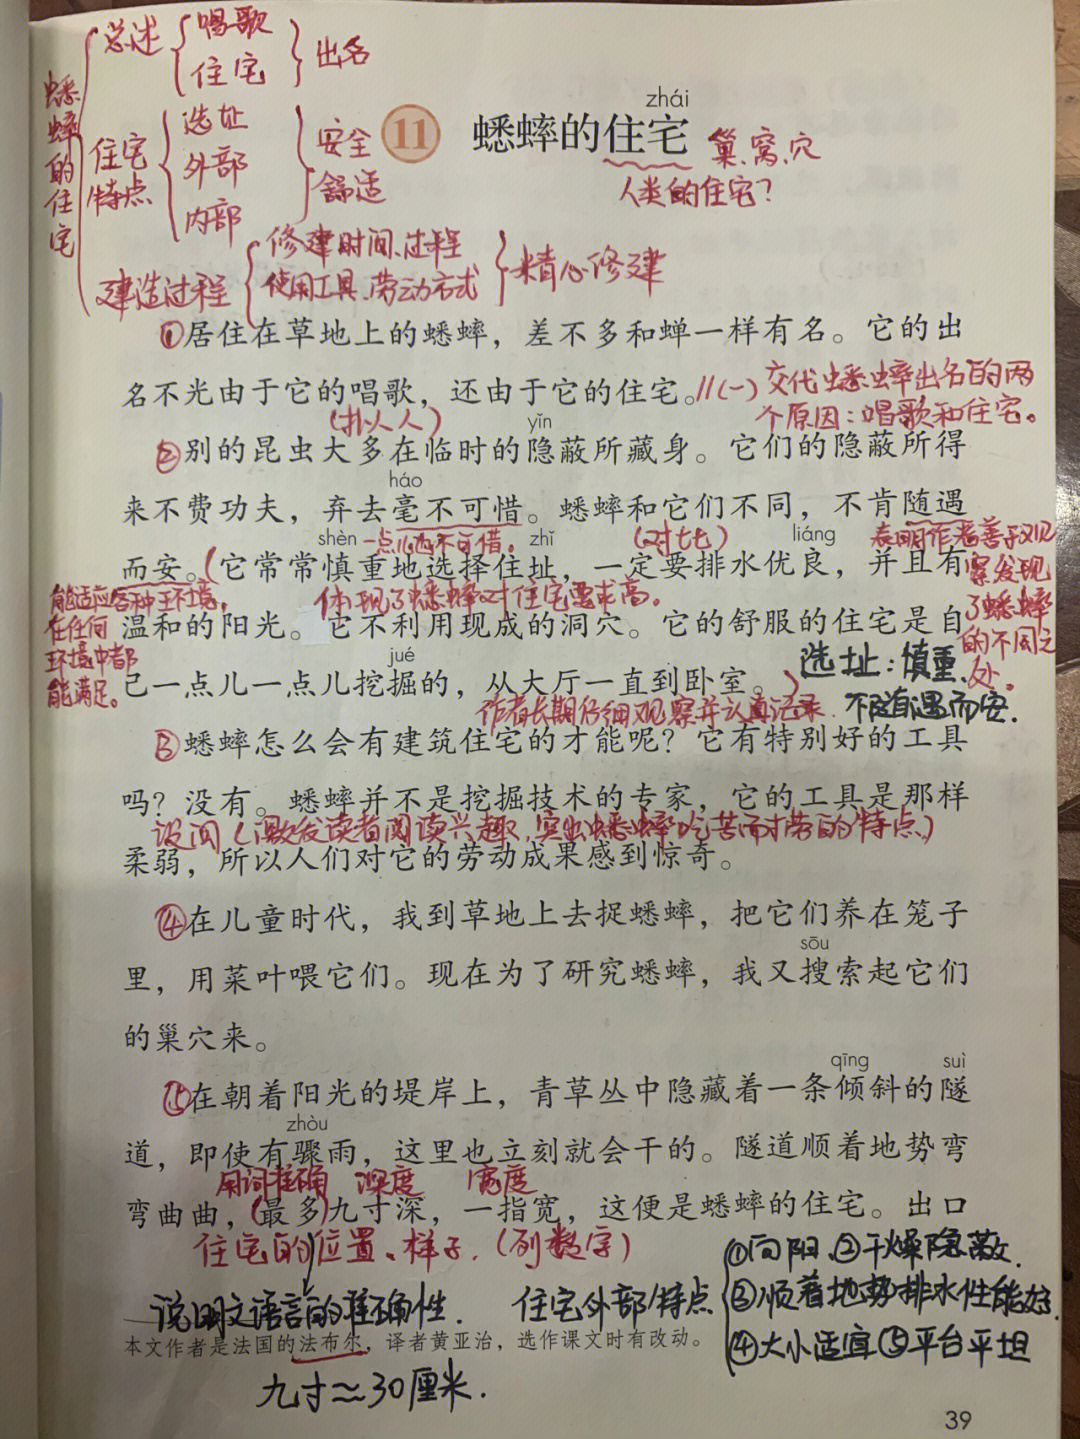 总述 唱歌 住宅 出名
蟋蟀的住宅
住宅特点 选址 外部 内部 安全 舒适
建造过程 修建时间、过程 使用工具、劳动方式 精心修建
zhái
11 蟋蟀的住宅
巢、窝、穴
人类的住宅？
①居住在草地上的蟋蟀，差不多和蝉一样有名。它的出
名不光由于它的唱歌，还由于它的住宅。//(一)交代蟋蟀出名的两
个原因：唱歌和住宅。
(拟人)
yǐn
②别的昆虫大多在临时的隐蔽所藏身。它们的隐蔽所得
háo
来不费功夫，弃去毫不可惜。蟋蟀和它们不同，不肯随遇
shèn 一点儿也不可惜。 zhǐ (对比) liáng 表明作者善于观
而安。(它常常慎重地选择住址，一定要排水优良，并且有
察发现
了蟋蟀
的不同之
处。
能适应各种环境，
在任何
环境中都
能满足。
体现了蟋蟀对住宅要求高。
温和的阳光。它不利用现成的洞穴。它的舒服的住宅是自
jué
己一点儿一点儿挖掘的，从大厅一直到卧室。)
选址：慎重、
不随遇而安.
作者长期仔细观察并认真记录
③蟋蟀怎么会有建筑住宅的才能呢？它有特别好的工具
吗？没有。蟋蟀并不是挖掘技术的专家，它的工具是那样
设问(激发读者阅读兴趣，突出蟋蟀吃苦耐劳的特点)
柔弱，所以人们对它的劳动成果感到惊奇。
④在儿童时代，我到草地上去捉蟋蟀，把它们养在笼子
sōu
里，用菜叶喂它们。现在为了研究蟋蟀，我又搜索起它们
的巢穴来。
qīng suì
⑤在朝着阳光的堤岸上，青草丛中隐藏着一条倾斜的隧
zhòu
道，即使有骤雨，这里也立刻就会干的。隧道顺着地势弯
用词准确 深度 宽度
弯曲曲，(最多)九寸深，一指宽，这便是蟋蟀的住宅。出口
住宅的位置、样子.(列数字)
说明文语言的准确性.
住宅外部特点 ①向阳 ②干燥隐蔽.
③顺着地势排水性能好.
④大小适宜⑤平台平坦
本文作者是法国的法布尔，译者黄亚治，选作课文时有改动。
九寸≈30厘米.
39